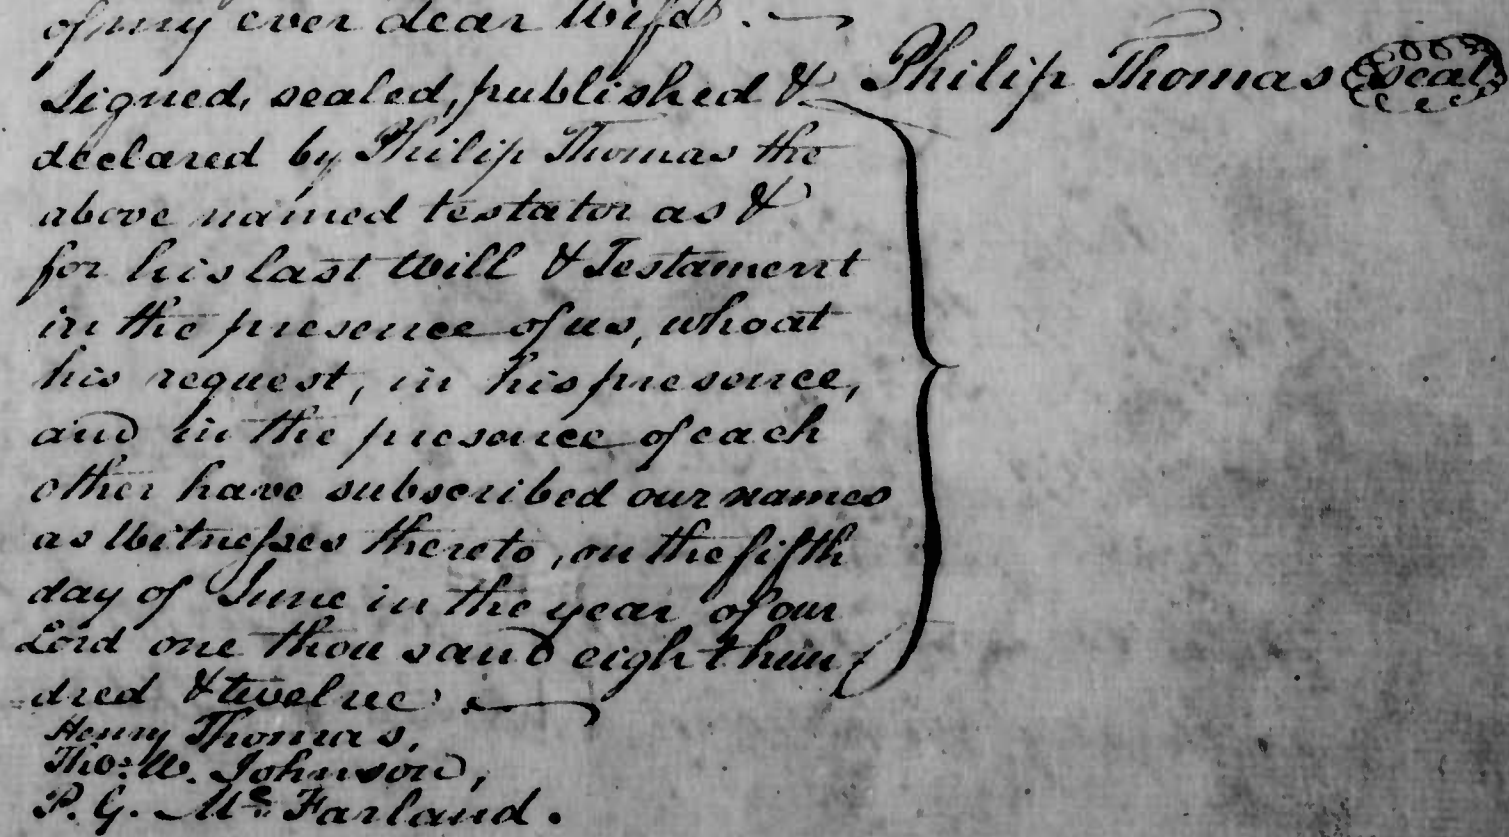 of my ever dear Wife.
Philip Thomas seal
Signed, sealed, published &
declared by Philip Thomas the
above named testator as &
for his last Will & Testament
in the presence of us, who at
his request, in his presence,
and in the presence of each
other have subscribed our names
as Witnesses thereto, on the fifth
day of June in the year of our
Lord one thousand eight hun
dred & twelve
Henry Thomas,
Tho: W. Johnson,
P. G. Mc Farland.